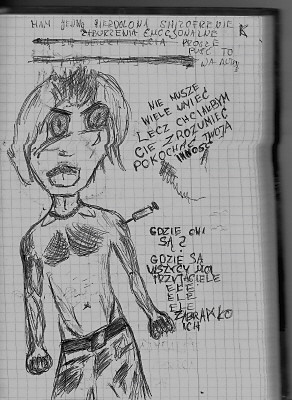 MAM JEDNĄ NIEZDOLONĄ SHIZOFRENIE
ZABURZENIA EMOCJONALNE
PROSZE
PUŚĆ TO
NA
NIE MUSZE
WIELE UMIEĆ
LECZ CHCIAŁBYM
CIE ZROZUMIEĆ
POKOCHAĆ TWOJĄ
INNOŚĆ
GDZIE ONI
SĄ?
GDZIE SĄ
WSZYCY MOI
PRZYJACIELE
ELE
ELE
ELE
ZABRAKŁO
ICH